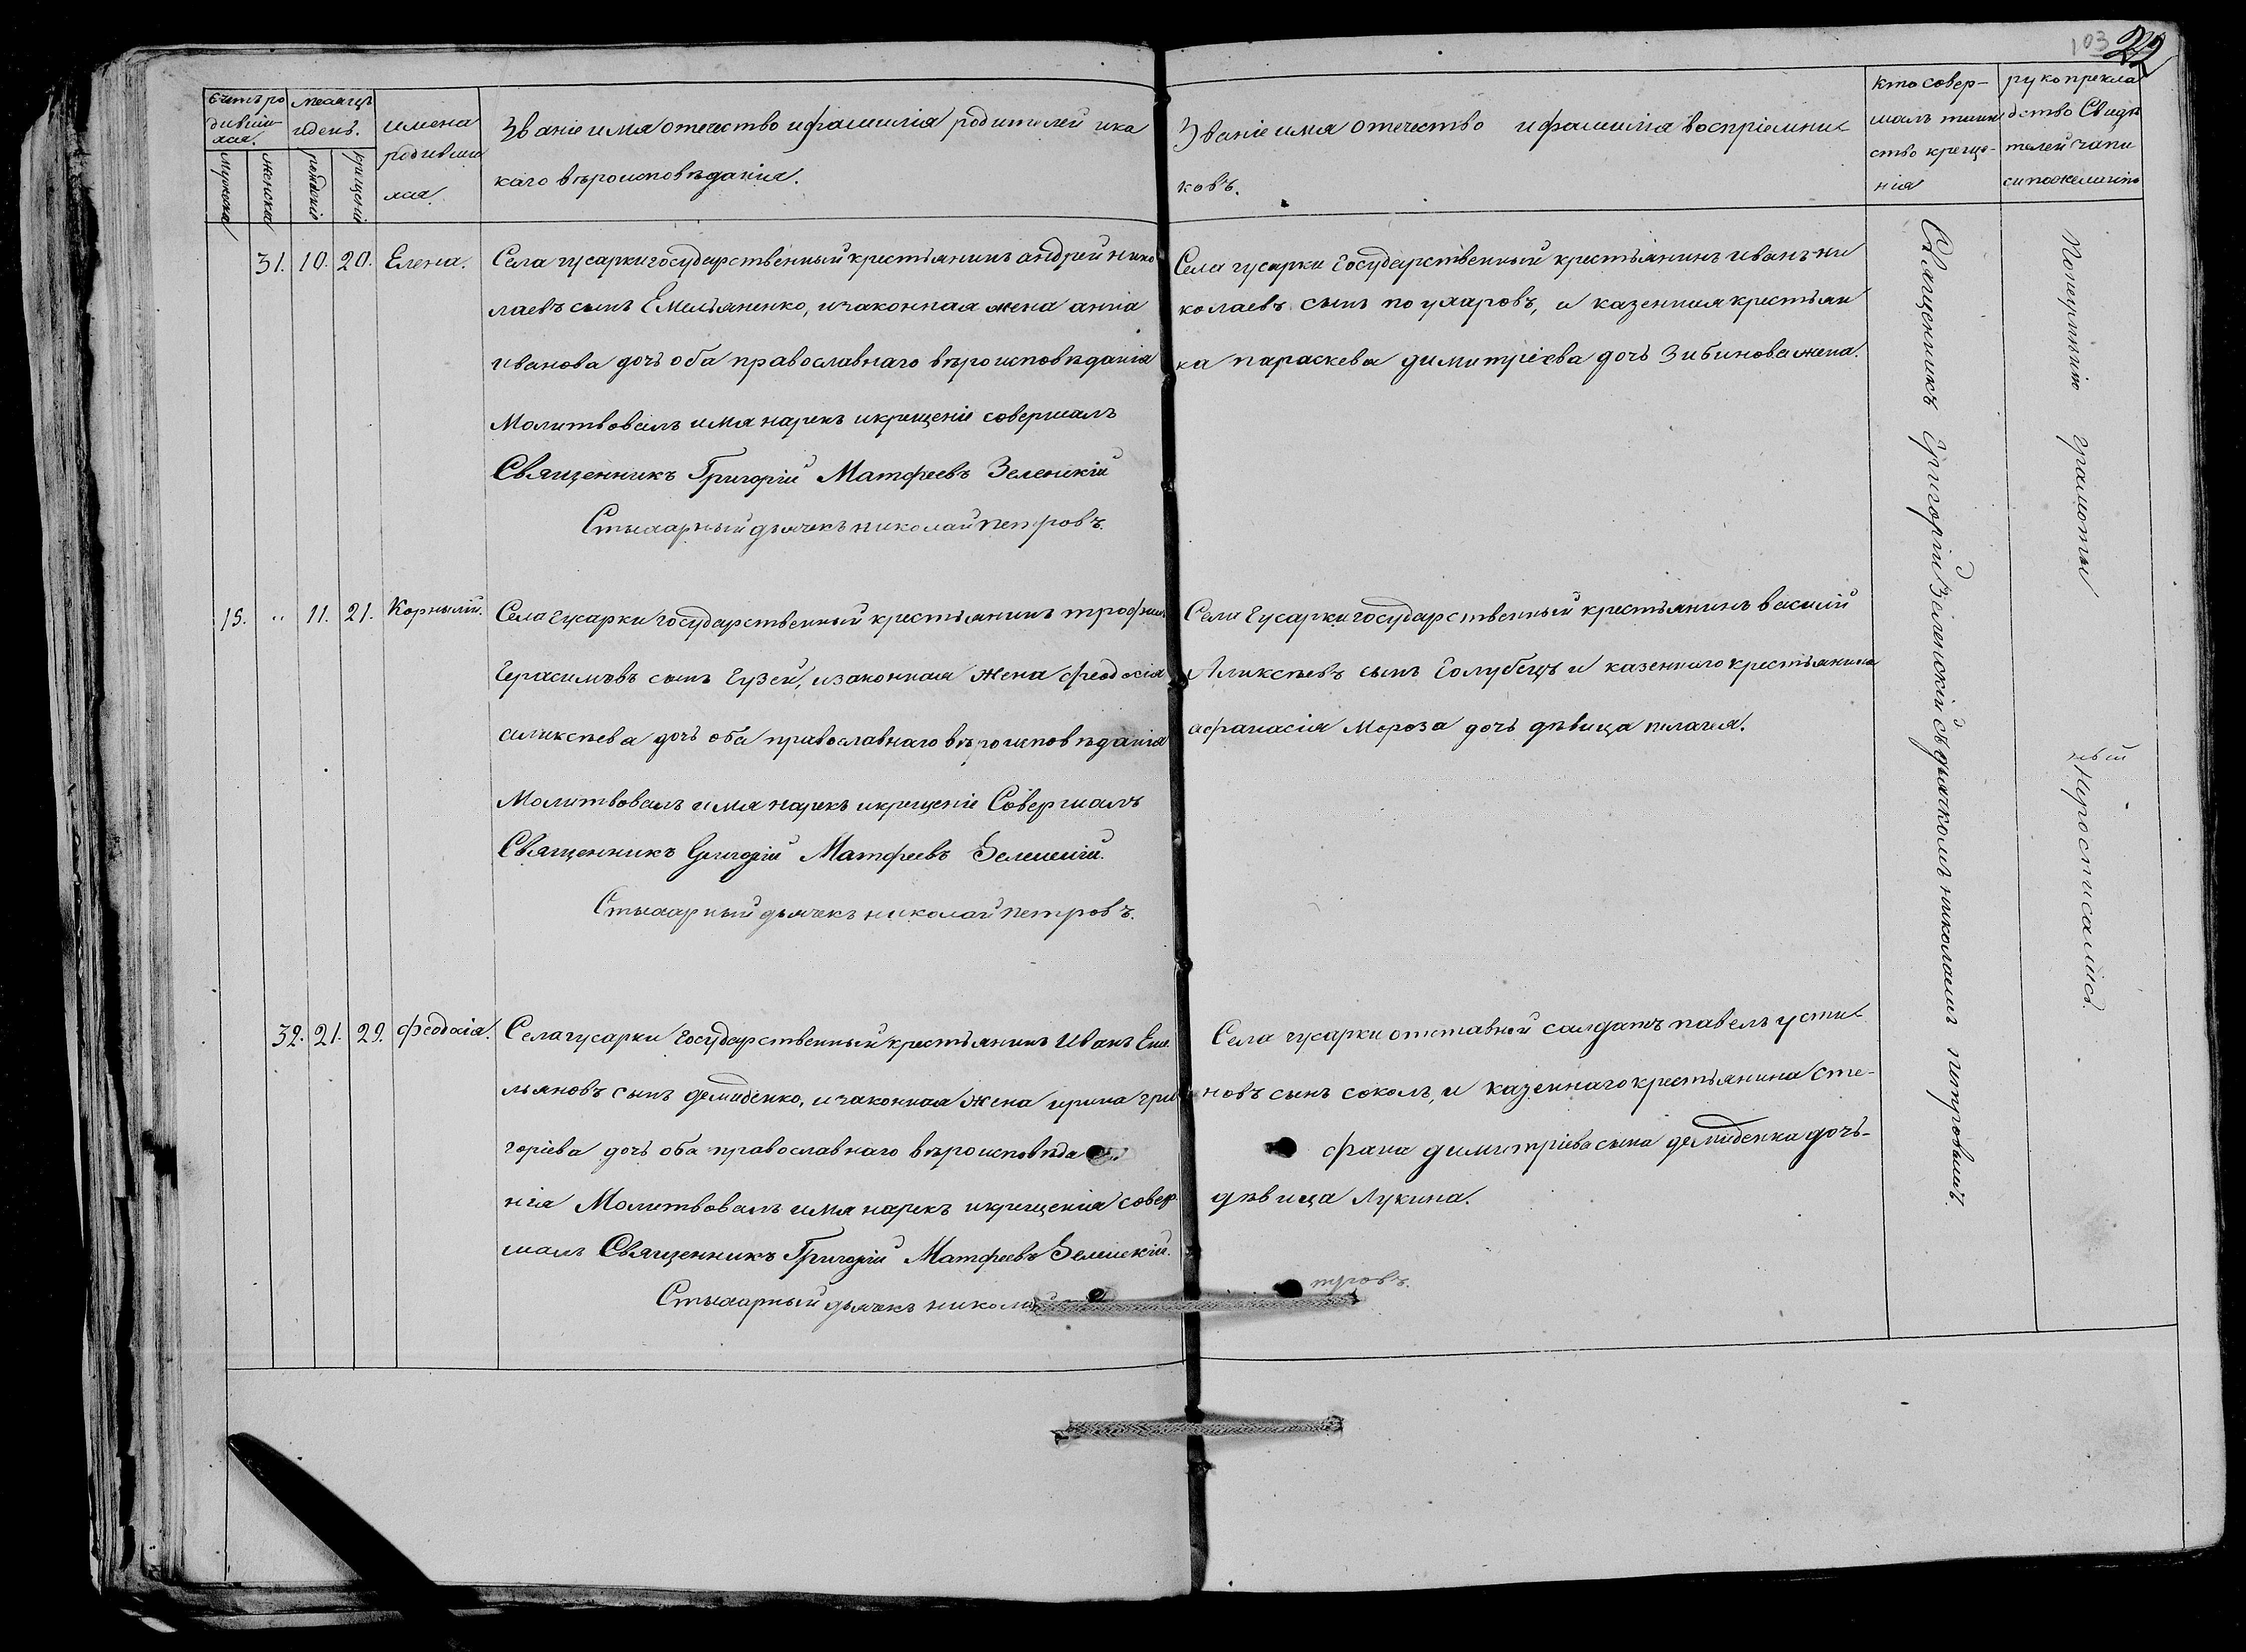 103 22
Счетъ ро
дивши
хся.
Мужеска
Женска
месяцъ
и день.
рожденіе
крещеніе
имена
родивши
хся.
Званіе имя отечество и фамилія родителей и ка
каго вѣроисповѣданія.
Званіе имя отечество и фамилія воспріемни
ковъ.
Кто совер-
шалъ таин
ство креще-
нія
рукоприкла
дство Свидѣ
телей запи
си по желанію
31. 10. 20. Елена.
Села гусарки государственный крестьянинъ андрей нико
лаевъ сынъ Емельяненко, и законная жена анна
иванова дочь оба православнаго вѣроисповѣданія
Молитвовалъ имя нарекъ и крещеніе совершалъ
Священникъ Григорій Матфеевъ Зеленскій
Стихарный дьячекъ николай петровъ.
Села гусарки Государственный крестьянинъ иванъ ни
колаевъ сынъ поумаровъ, и казенная крестьян
ка параскева димитріева дочь Зибинова жена.
15. " 11. 21. Корнылій.
Села гусарки государственный крестьянинъ трофим
Герасимовъ сынъ Гузей, и законная жена феодосія
аликсѣева дочь оба православнаго вѣроисповѣданія
Молитвовалъ имя нарекъ и крещеніе Совершалъ
Священникъ Григорій Матфеевъ Зеленскій.
Стихарный дьячекъ николай петровъ.
Села Гусарки государственный крестьянинъ василій
Аликсѣевъ сынъ Голубецъ и казеннаго крестьянина
афанасія Мороза дочь дѣвица пелагея.
32. 21. 29. феодосія.
Села гусарки Государственный крестьянинъ Иванъ Еме
льяновъ сынъ демиденко, и законная жена ирина гри
горіева дочь оба православнаго вѣроисповѣда
нія Молитвовалъ имя нарекъ и крещенія совер
шалъ Священникъ Григорій Матфеевъ Зеленскій.
Стихарный дьячекъ николай
тровъ.
Села гусарки отставной салдатъ павелъ усти
новъ сынъ соколъ, и казеннаго крестьянина сте-
фана димитріева сына демиденка дочь-
дѣвица Лукина.
Священникъ Григорій Зеленскій съ дьячкомъ николаемъ петровымъ.
Понеумѣнію грамоты
ный
Неросписались.